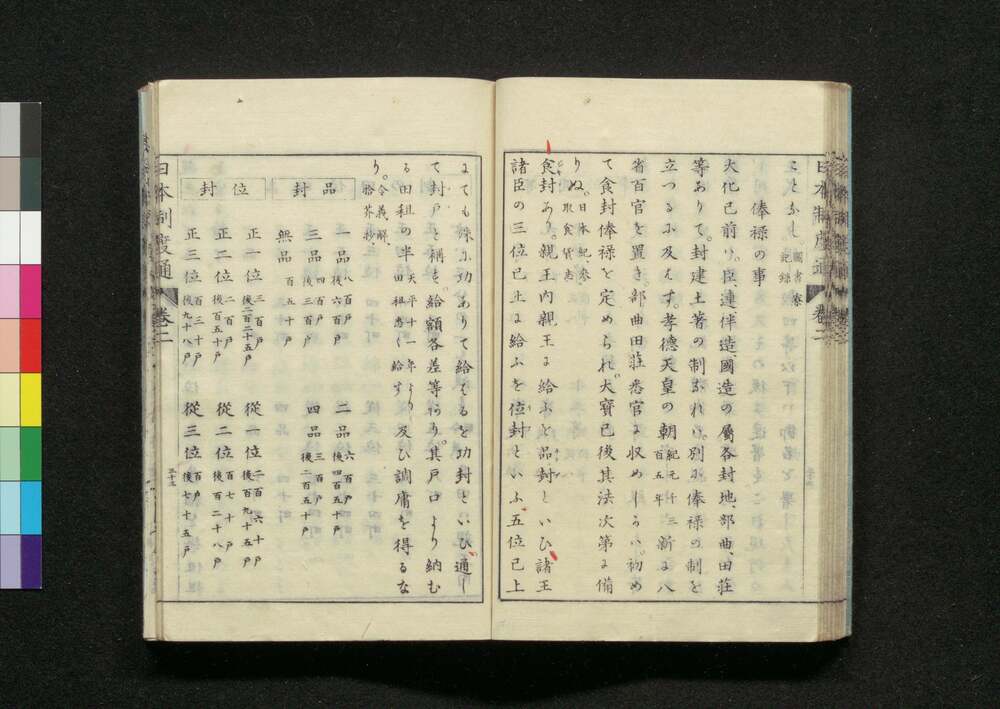 ことなし。圖書寮記録
俸禄の事
大化已前ハ。臣連伴造國造の屬各封地、部曲、田莊
等ありて。封建土著の制なれば。別に俸禄の制を
立つるに及ばず。孝德天皇の朝紀元千三百五年新に八
省百官を置き。部曲田莊悉官に収めしかハ。初め
て食封俸禄を定めらる。大寶已後其法次第に備
りぬ。日本紀
食封あり。親王内親王に給ふを品封といひ。諸王
諸臣の三位已上に給ふを位封といふ五位已上
にても殊に功ありて給はるを功封といひ。通し
て封戸と稱す。給額各差等あり。其戸口より納む
る田租の半天平十一年より田租悉く給す及ひ調庸を得るな
り。令義解。拾芥抄。
品封
一品八百戸後六百戸 二品六百戸後四百五十戸
三品四百戸後三百戸 四品三百戸後二百五十戸
無品百五十戸
位封
正一位三百戸後二百二十五戸 從一位二百六十戸後百九十五戸
正二位二百戸後百五十戸 從二位百七十戸後百二十八戸
正三位百三十戸後九十八戸 從三位百戸後七十五戸
日本制度通
卷二
三十三